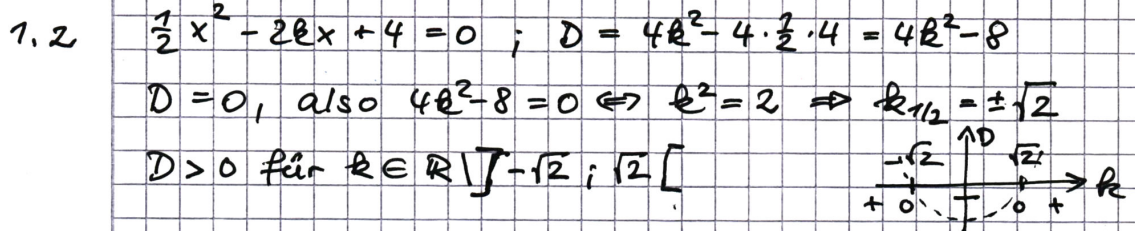 1.2 ½x² - 2kx + 4 = 0 ; D = 4k² - 4·½·4 = 4k² - 8
D = 0, also 4k² - 8 = 0 ⇔ k² = 2 ⇒ k₁/₂ = ±√2
D > 0 für k ∈ ℝ \ ]-√2 ; √2 [
D
-√2 √2
k
+ 0 - 0 +